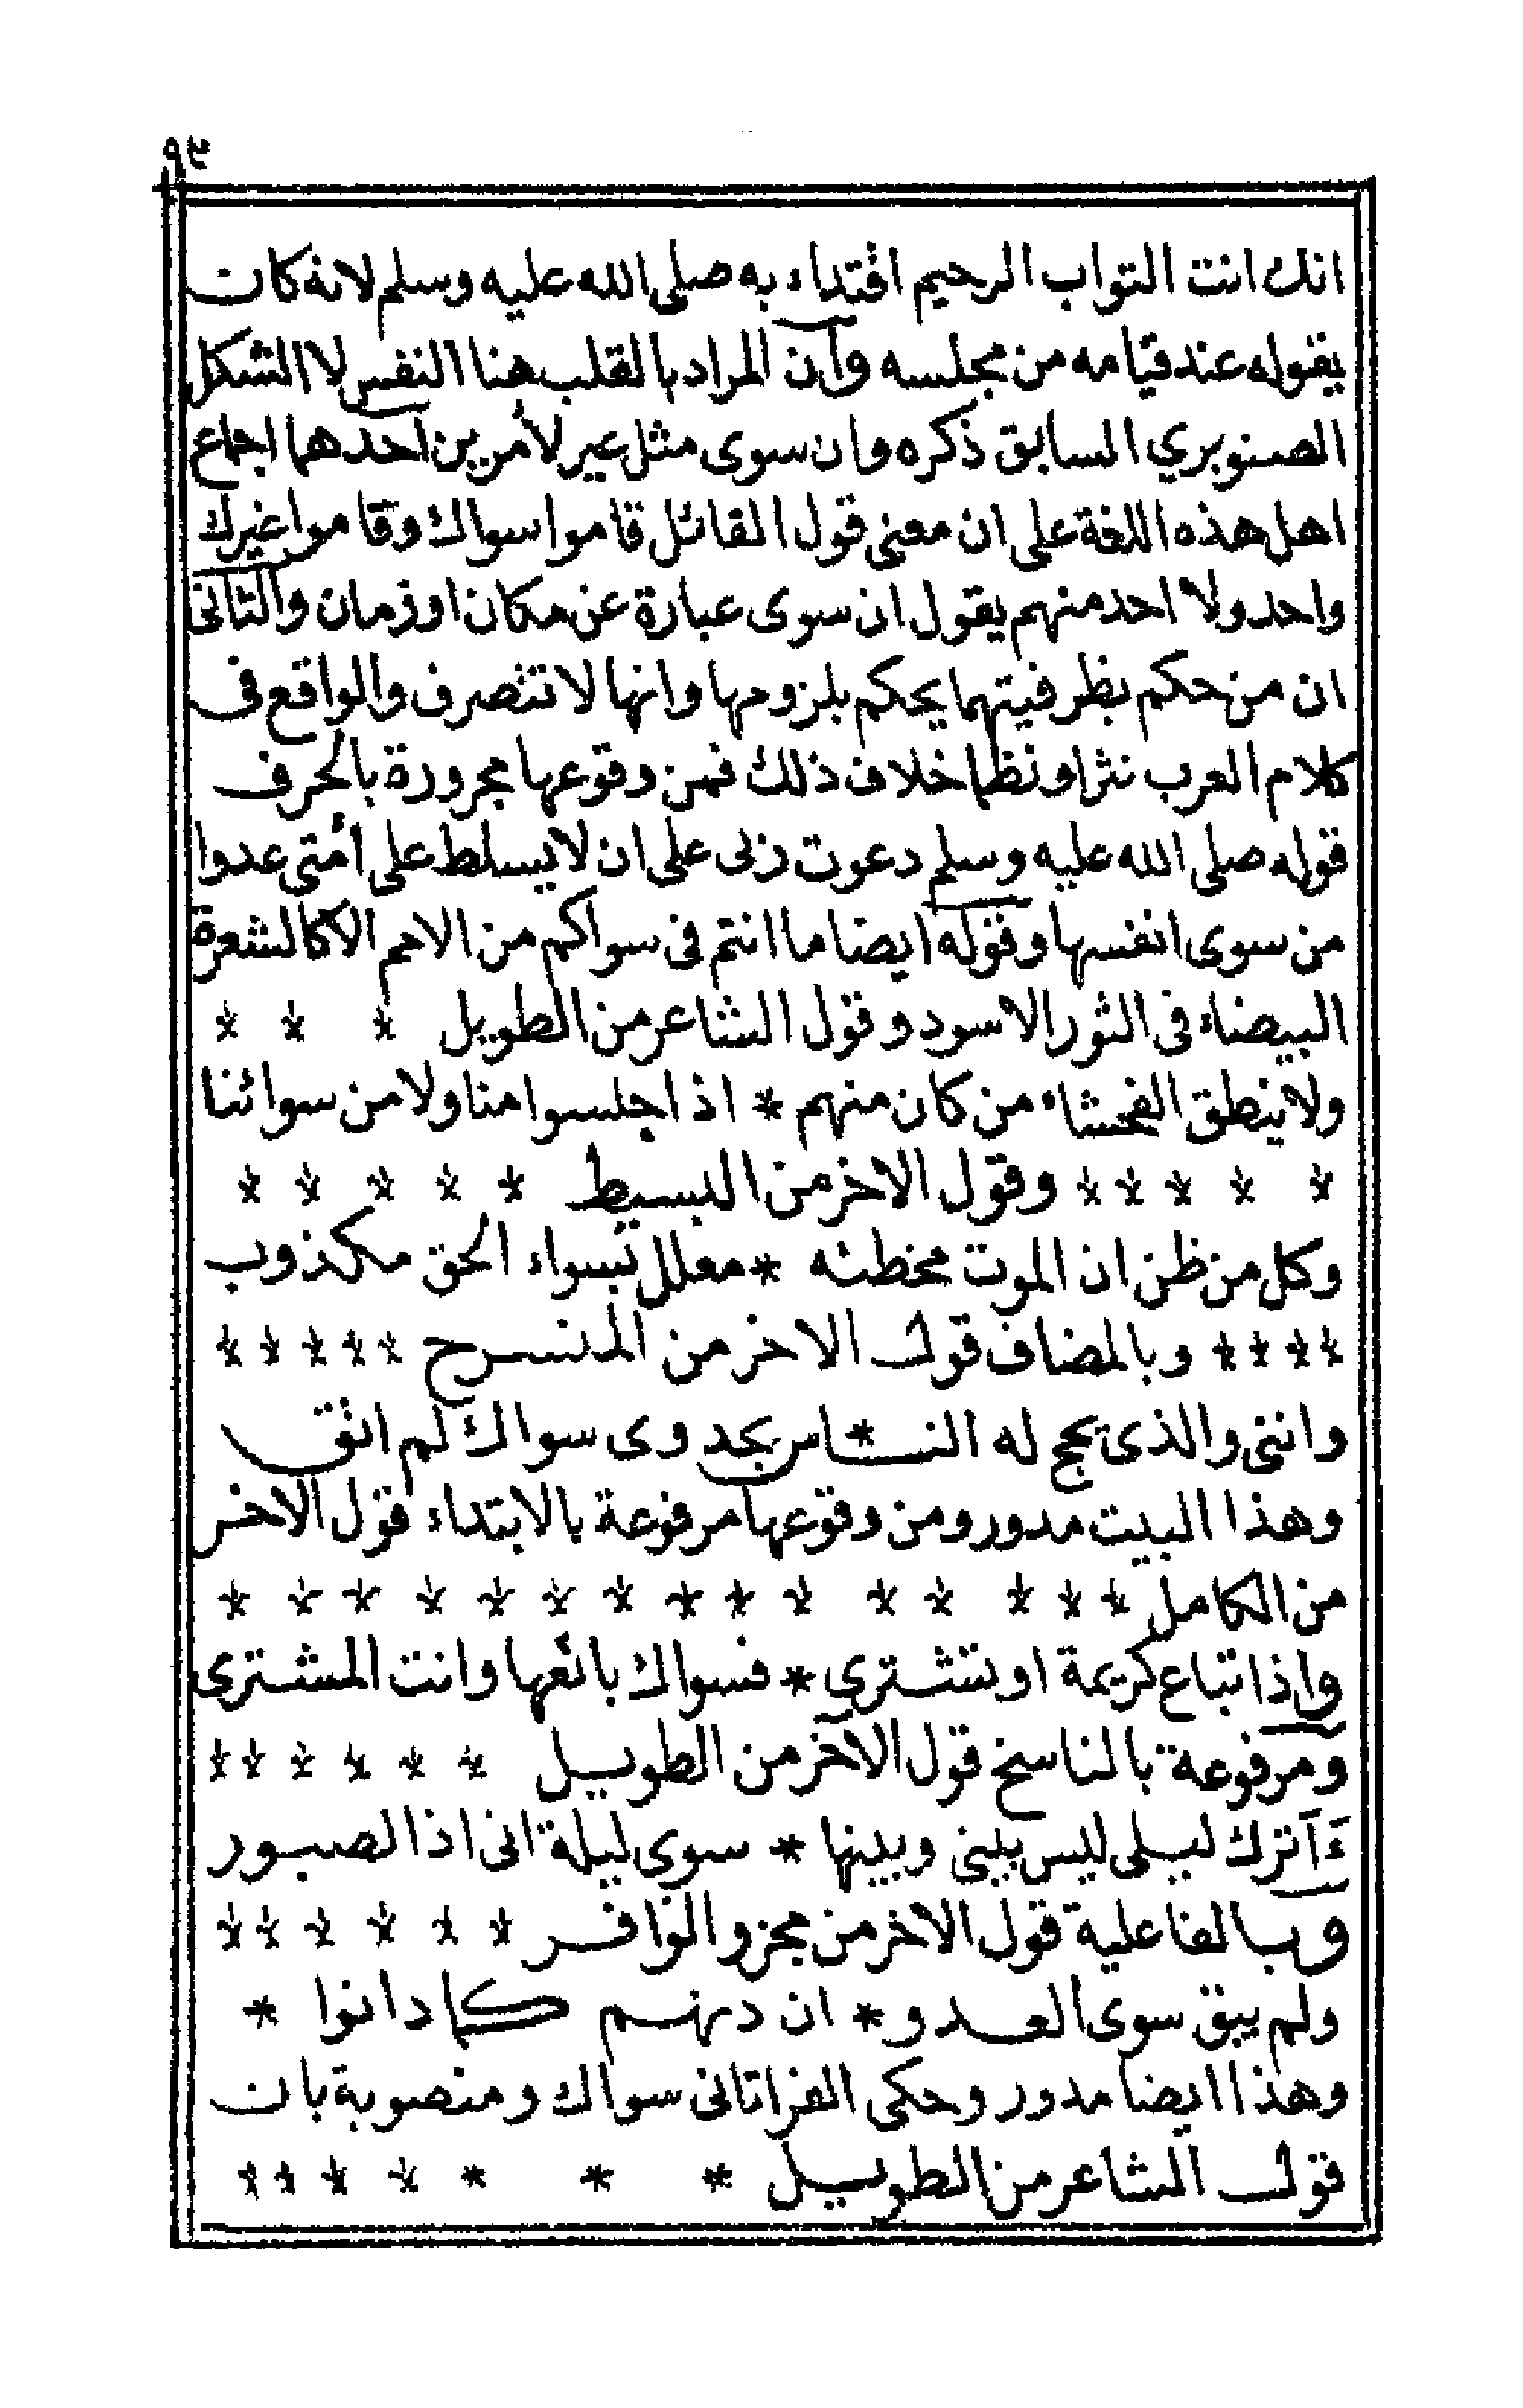 ٩٣
انك انت التواب الرحيم اقتداء به صلى الله عليه وسلم لانه كان
يقوله عند قيامه من مجلسه وان المراد بالقلب هنا النفس لا الشكل
الصنوبري السابق ذكره وان سوى مثل غير لأمرين احدهما اجماع
اهل هذه اللغة على ان معنى قول القائل قاموا سواك وقاموا غيرك
واحد ولا احد منهم يقول ان سوى عبارة عن مكان او زمان والثانى
ان من حكم بظرفيتهما يحكم بلزومها وانها لا تتصرف والواقع فى
كلام العرب نثرا ونظما خلاف ذلك فمن وقوعها مجرورة بالحرف
قوله صلى الله عليه وسلم دعوت ربى على ان لا يسلط على أمتى عدوا
من سوى انفسها وقوله ايضا ما انتم فى سواكم من الامم الا كالشعرة
البيضاء فى الثور الاسود وقول الشاعر من الطويل * * *
ولا ينطق الفحشاء من كان منهم * اذا جلسوا منا ولا من سوائنا
* * * * * وقول الاخر من البسيط * * * * *
وكل من ظن ان الموت مخطئه * معلل بسواء الحق مكذوب
* * * * وبالمضاف قول الاخر من المنسرح * * * * *
واننى والذى يحج له النـ * ـاس بجدوى سواك لم اثق
وهذا البيت مدور ومن وقوعها مرفوعة بالابتداء قول الاخر
من الكامل * * * * * * * * * * * * * * *
واذا تباع كريمة او تشترى * فسواك بائعها وانت المشترى
ومرفوعة بالناسخ قول الآخر من الطويل * * * * * *
ءآترك ليلى ليس بينى وبينها * سوى ليلة انى اذا لصبور
وبالفاعلية قول الاخر من مجزو الوافر * * * * * *
ولم يبق سوى العدو * ان دنهم كما دانوا *
وهذا ايضا مدور وحكى الفرا اتانى سواك ومنصوبة بان
قول الشاعر من الطويل * * * * * * *